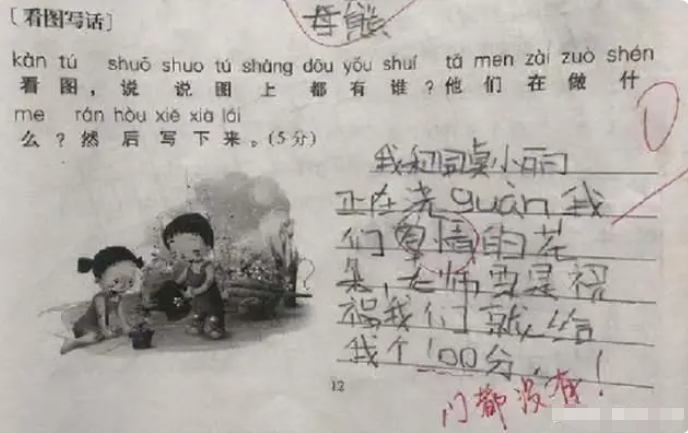 [看图写话]
母熊
kàn tú shuō shuo tú shàng dōu yǒu shuí tā men zài zuò shén
看图,说说图上都有谁?他们在做什
me rán hòu xiě xià lái
么?然后写下来。(5分)
0
我和同桌小丽
正在浇guàn我
们爱情的花
朵,老师要是祝
福我们就给
我个100分。
12
门都没有!